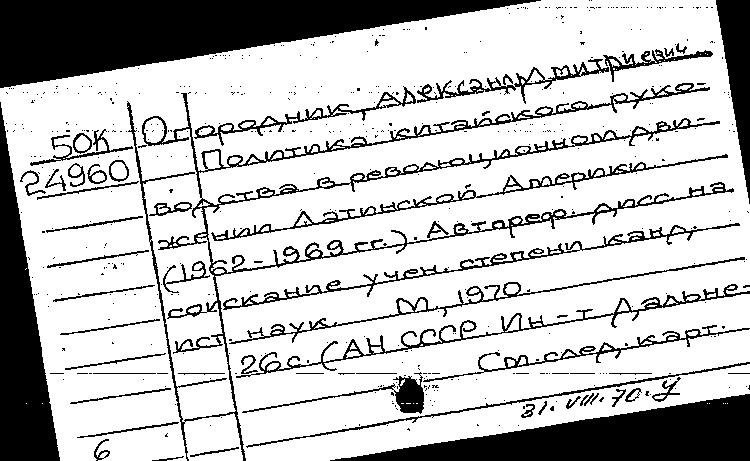 50К
24960
Огородник, Александр Дмитриевич
Политика китайского руко-
водства в революционном дви-
жении Латинской Америки.
(1962-1969 гг.). Автореф. дисс. на
соискание учен. степени канд.
ист. наук. М., 1970.
26 с. (АН СССР. Ин-т Дальне-
См. след. карт.
31.VIII.70. У
6